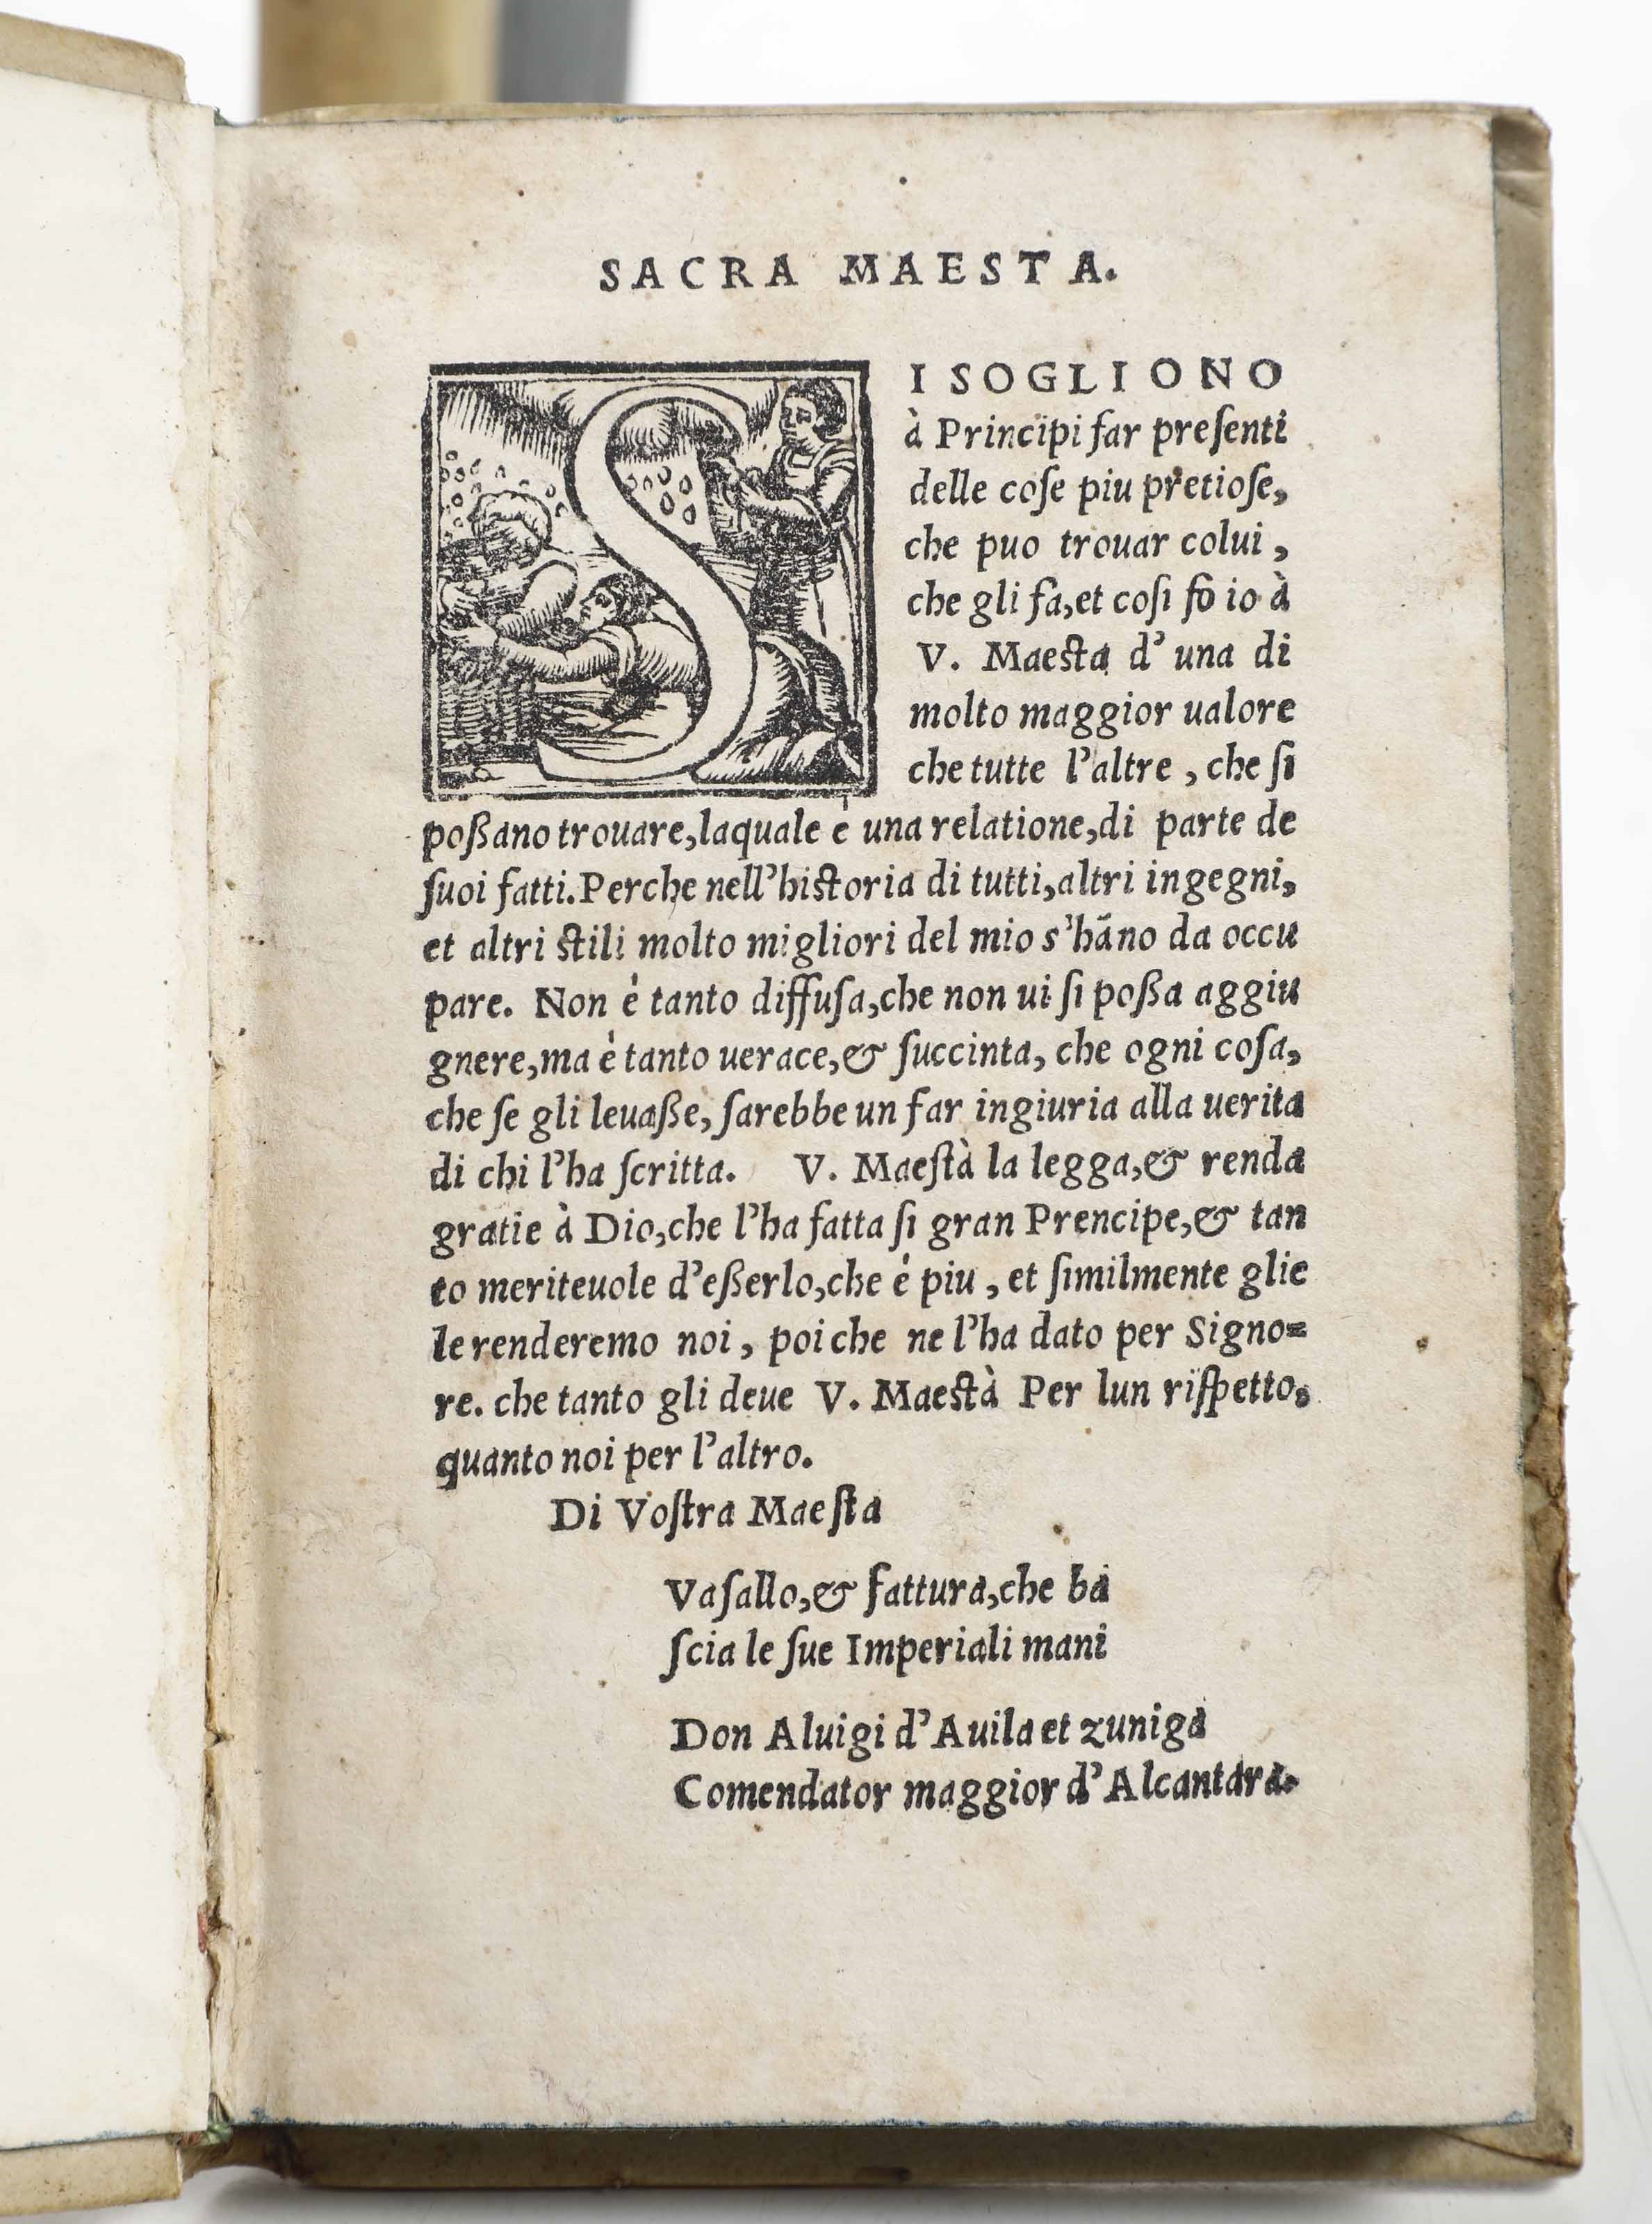 SACRA MAESTA.
SI SOGLIONO
à Principi far preſenti
delle coſe piu pretioſe,
che puo trouar colui,
che gli fa,et coſi fo io à
V. Maesta d'una di
molto maggior ualore
che tutte l'altre, che ſi
poßano trouare,laquale è una relatione,di parte de
ſuoi fatti.Perche nell'historia di tutti,altri ingegni,
et altri stili molto migliori del mio s'hāno da occu
pare. Non è tanto diffuſa,che non ui ſi poßa aggiu
gnere,ma è tanto uerace,& ſuccinta, che ogni coſa,
che ſe gli leuaße, ſarebbe un far ingiuria alla uerita
di chi l'ha ſcritta. V. Maeſtà la legga,& renda
gratie à Dio,che l'ha fatta ſi gran Prencipe,& tan
to meriteuole d'eßerlo,che è piu, et ſimilmente glie
le renderemo noi, poi che ne l'ha dato per Signo=
re. che tanto gli deue V. Maestà Per lun riſpetto,
quanto noi per l'altro.
Di Voſtra Maeſta
Vaſallo,& fattura,che ba
ſcia le ſue Imperiali mani
Don Aluigi d'Auila et zuniga
Comendator maggior d'Alcantara.